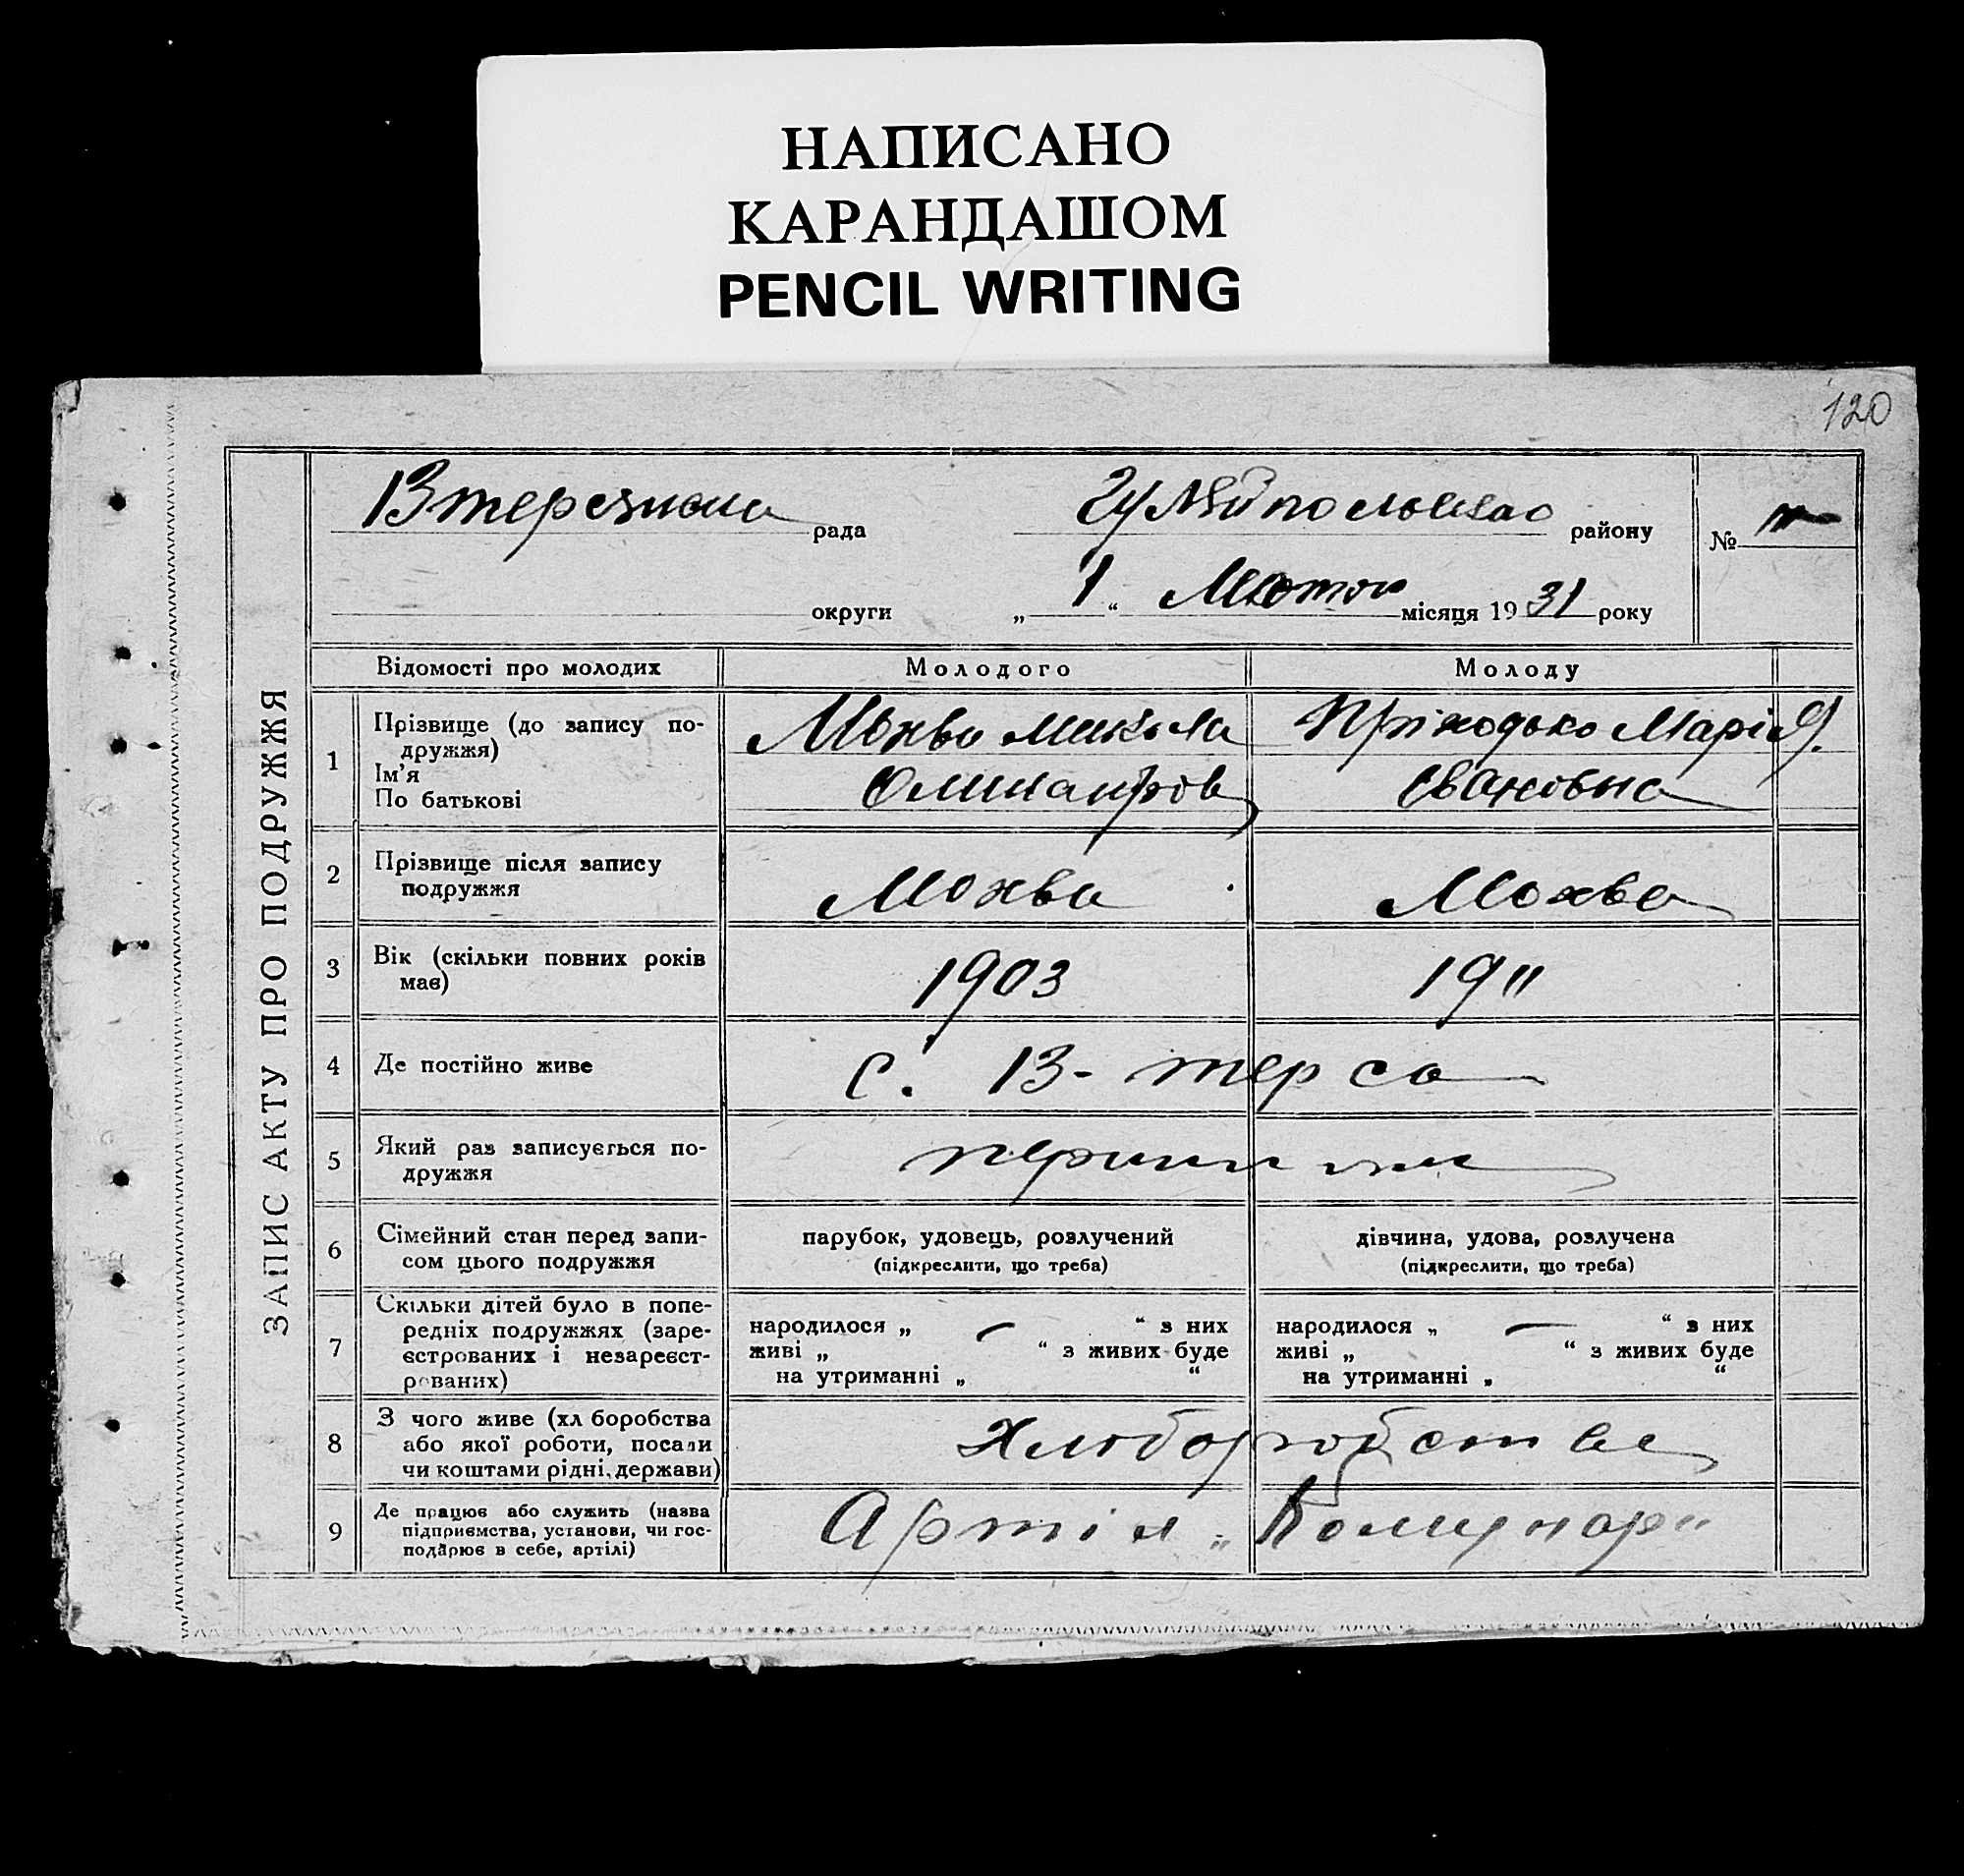 НАПИСАНО
КАРАНДАШОМ
PENCIL WRITING
120
ЗАПИС АКТУ ПРО ПОДРУЖЖЯ
рада
району
№
округи
„ 1 “ місяця 19 31 року
Відомості про молодих Молодого Молоду
1 Прізвище (до запису по-
дружжя)
Ім'я
По батькові
Мохва Микола
Приходько Марія
Ивановна
2 Прізвище після запису
подружжя
Мохва Мохва
3 Вік (скільки повних років
має)
1903 1911
4 Де постійно живе
с. В-терса
5 Який раз записується по-
дружжя
6 Сімейний стан перед запи-
сом цього подружжя
парубок, удовець, розлучений
(підкреслити, що треба)
дівчина, удова, розлучена
(підкреслити, що треба)
7 Скільки дітей було в попе-
редніх подружжях (заре-
єстрованих і незареєст-
рованих)
народилося „ — “ з них
живі „ “ з живих буде
на утриманні „ “
народилося „ — “ з них
живі „ “ з живих буде
на утриманні „ “
8 З чого живе (хл боробства
або якої роботи, посади
чи коштами рідні, держави)
9 Де працює або служить (назва
підприємства, установи, чи гос-
подарює в себе, артілі)
Артіл „Комунар"